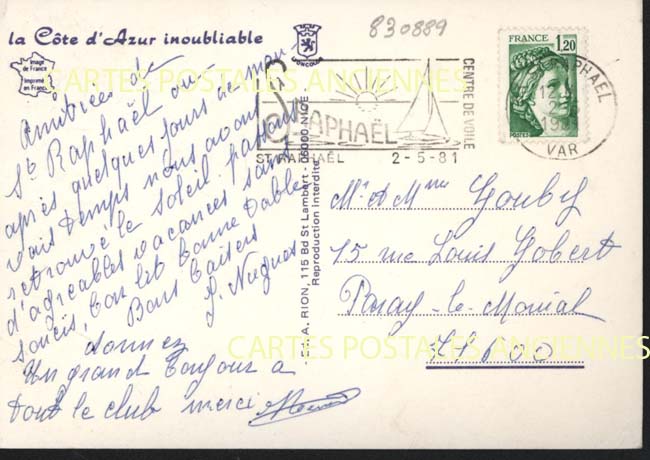 830889
la Côte d'Azur inoubliable
Image
de France
Imprimé
en France
CARTES POSTALES ANCIENNES
Amitiés de
St Raphaël où
après quelques jours de mau-
vais temps nous avons
retrouvé le soleil. passons
d'agréables vacances sans
soucis, bon lit bonne table
Bons Baisers
J. Nugues
donnez
Un grand bonjour a
tout le club merci
- E.A. RION, 115 Bd St Lambert - 06000 NICE
Reproduction Interdite
RAPHAËL
CENTRE DE VOILE
ST RAPHAËL 2-5-81
FRANCE 1,20
POSTES
RAPHAEL
VAR
Mr et Mme Gouby
15 rue Louis Gobert
Paray-le-Monial
CARTES POSTALES ANCIENNES